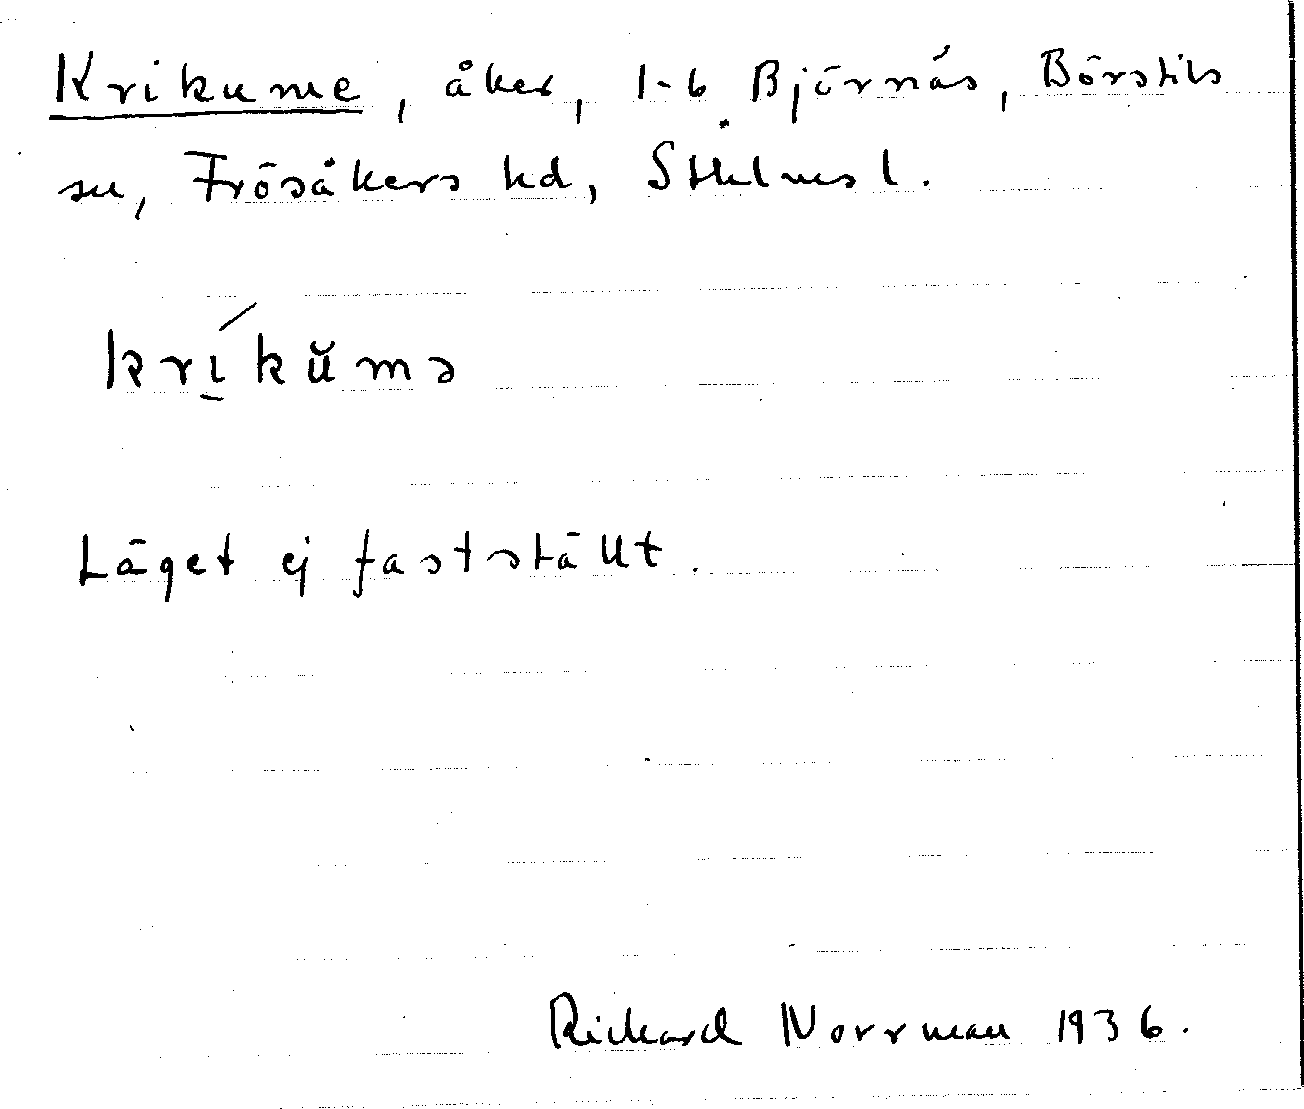 Krikume, åker, 1-6 Björnäs, Börstils
sn, Frösåkers hd, Sthlms l.
krí̱kŭmə
Läget ej fastställt.
Rickard Norrman 1936.